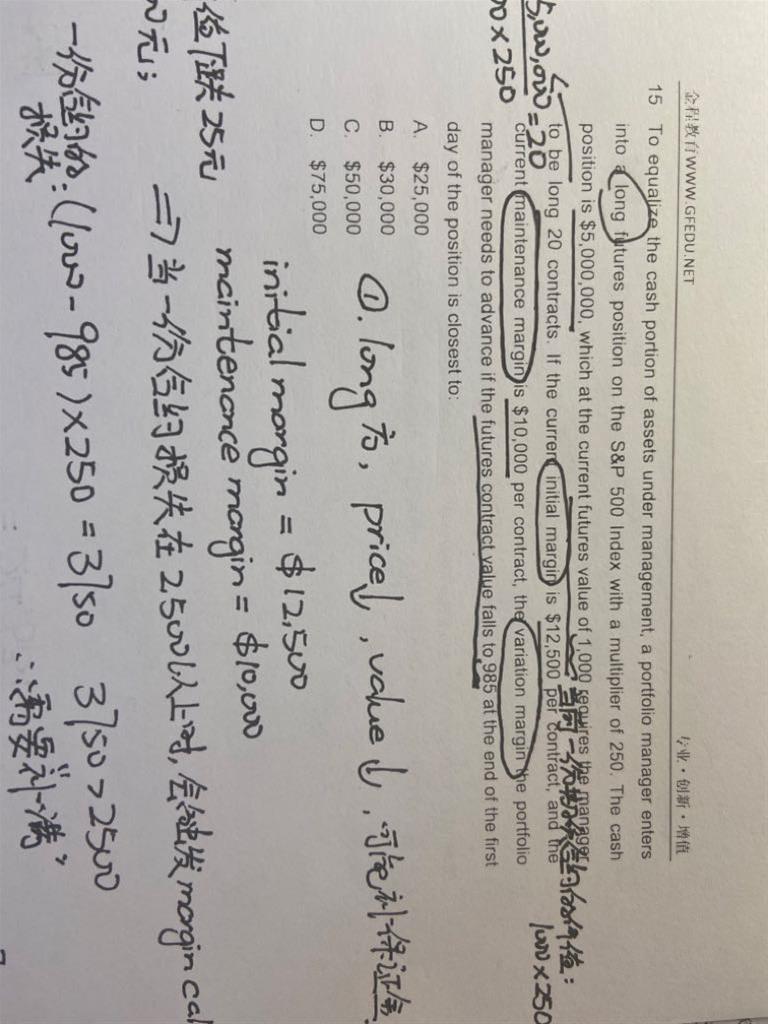 金程教育WWW.GFEDU.NET
专业·创新·增值
15 To equalize the cash portion of assets under management, a portfolio manager enters
into a long futures position on the S&P 500 Index with a multiplier of 250. The cash
position is $5,000,000, which at the current futures value of 1,000 requires the manager
to be long 20 contracts. If the current initial margin is $12,500 per contract, and the
current maintenance margin is $10,000 per contract, the variation margin the portfolio
manager needs to advance if the futures contract value falls to 985 at the end of the first
day of the position is closest to:
A. $25,000
B. $30,000
C. $50,000
D. $75,000
5,000,000 = 20
00×250
一份合约的价值:
1000×250
①. long方, price↓, value↓, 可能补保证金
initial margin = $12,500
maintenance margin = $10,000
值下跌25元
0元;
⇒当一份合约损失在2500以上时,会触发margin cal
一份合约的
损失:(1000-985)×250=3750 3750>2500
∴需要补“满”